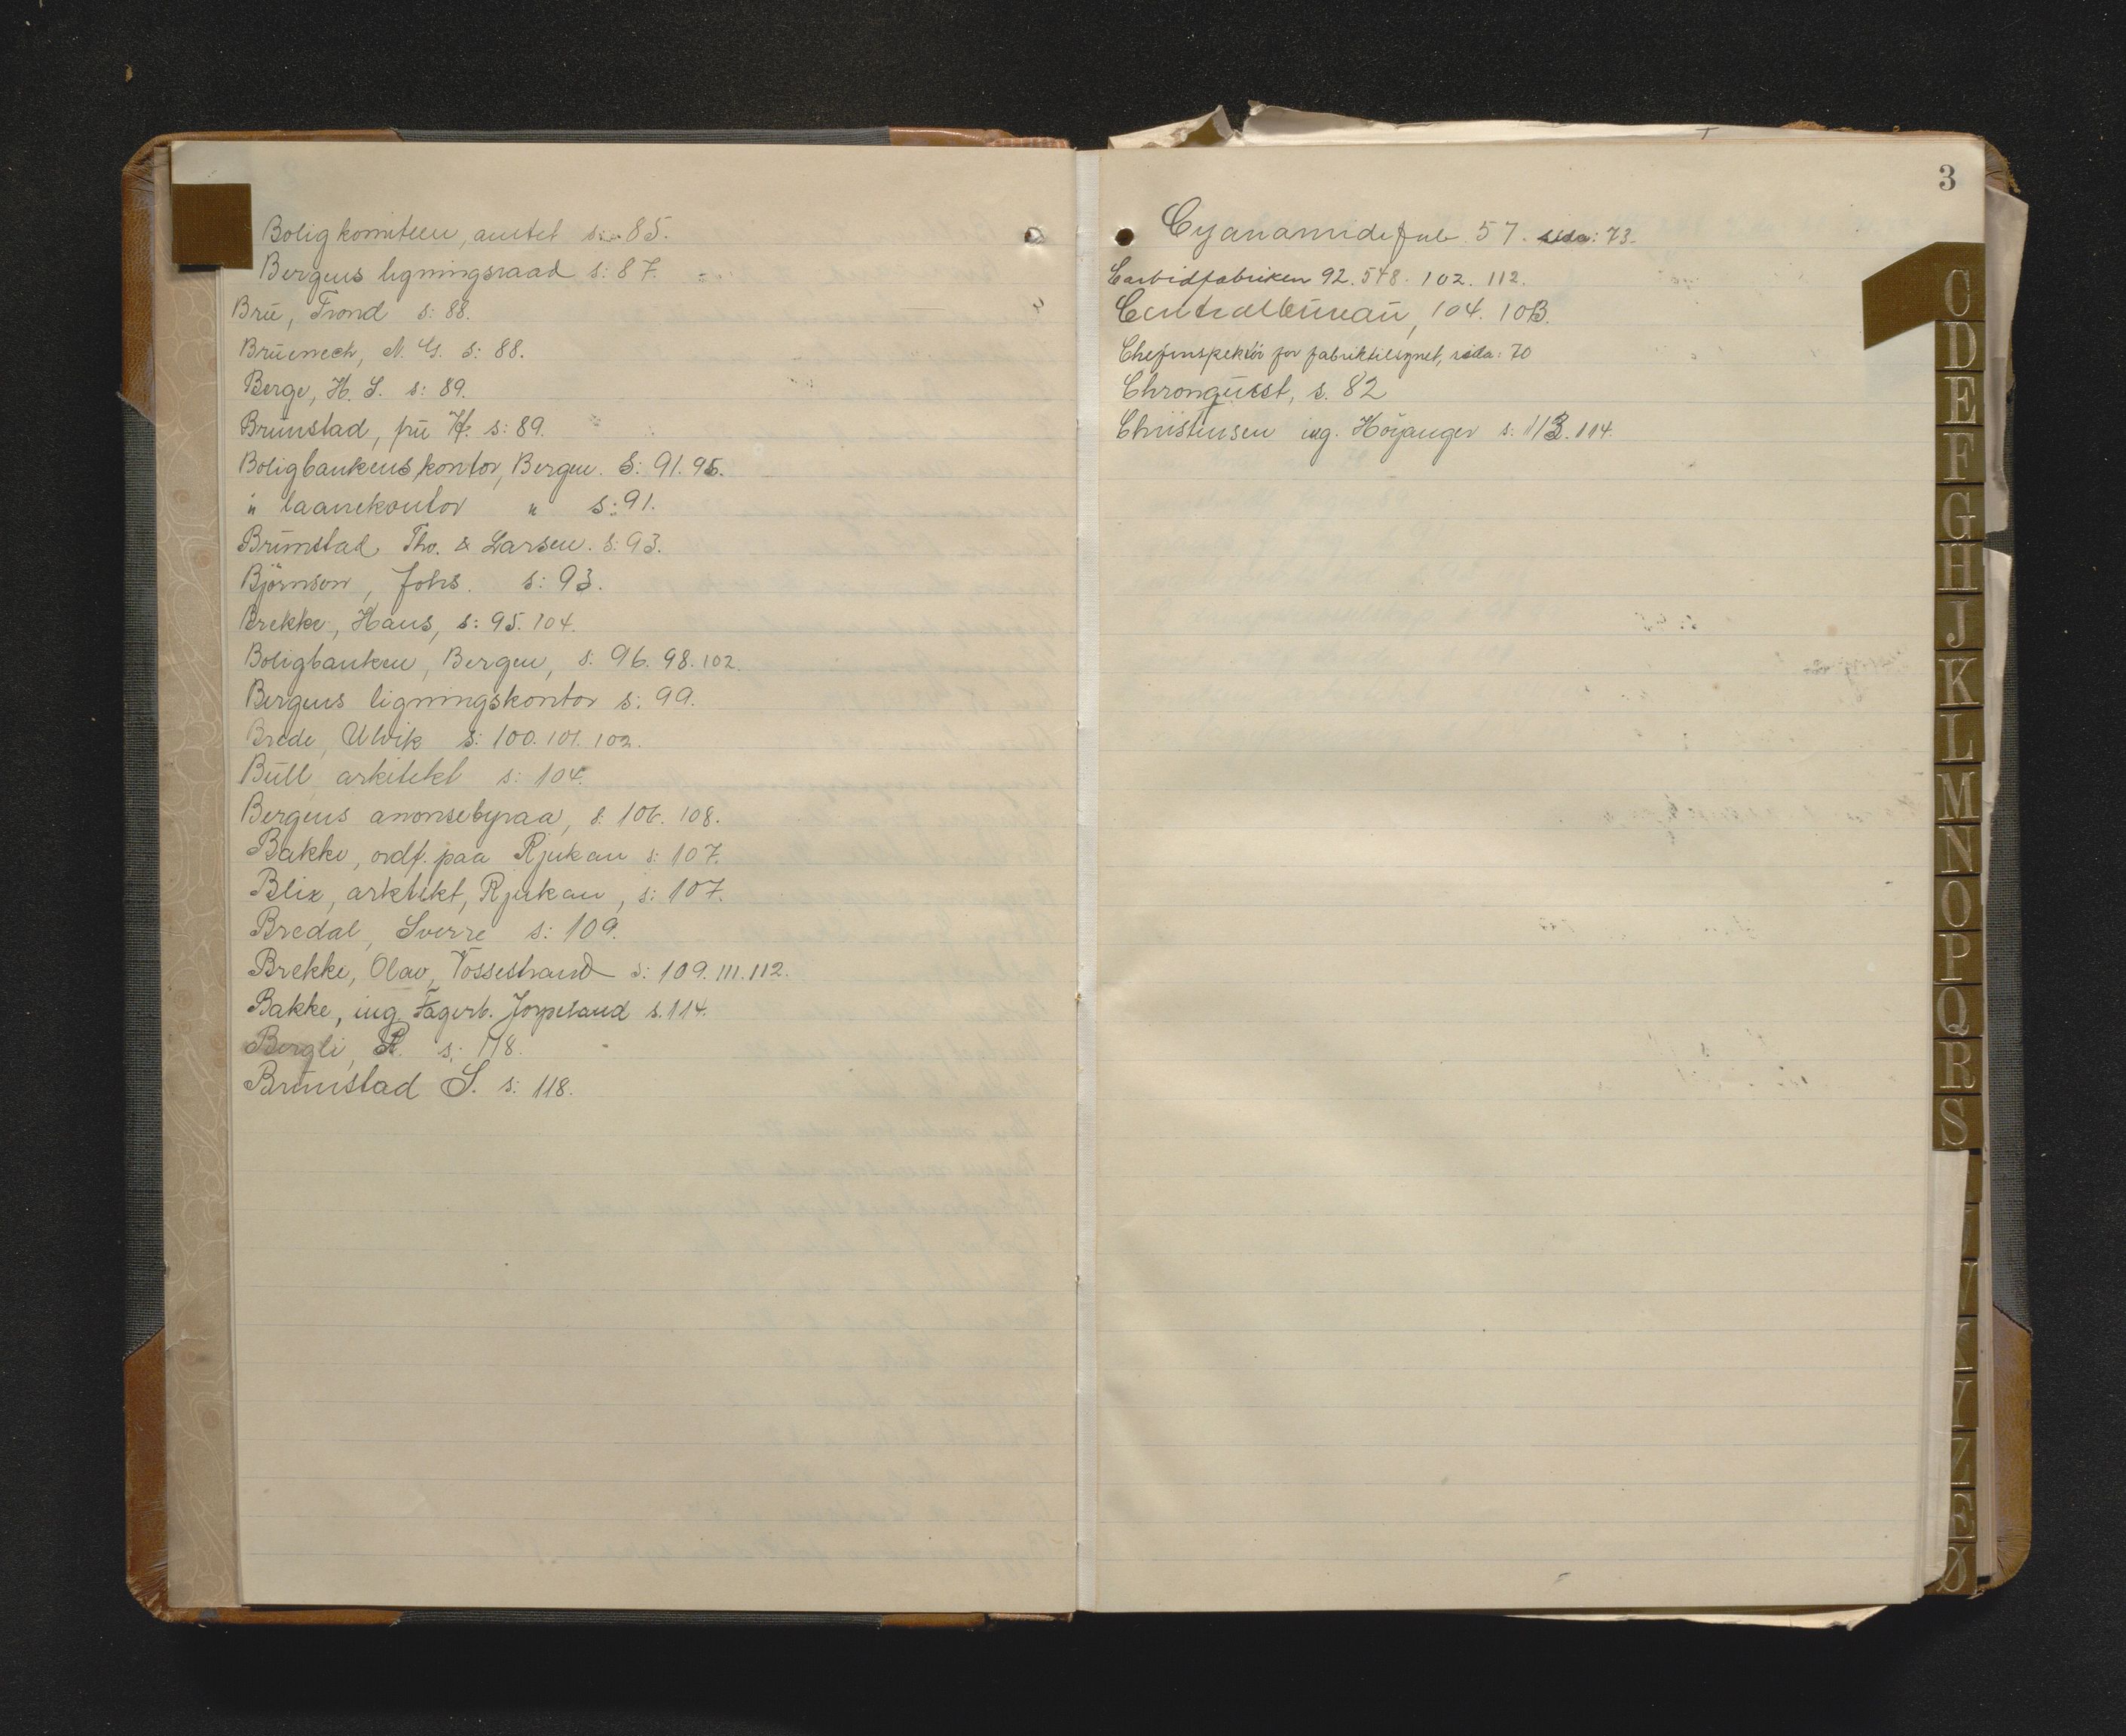 Boligkomiteen, amtet s: 85.
Bergens ligningsraad s: 87.
Brū, Trond s: 88.
Brūenech, N. G. s: 88.
Berge, H. S. s: 89.
Brūnstad, frū H. s: 89.
Boligbankens kontor, Bergen. S: 91. 95.
" laanekontor " s: 91.
Brūnstad Tho. & Larsen. s: 93.
Björnson, Johs. s: 93.
Brekke, Hans, s: 95. 104.
Boligbanken, Bergen, s: 96. 98. 102.
Bergens ligningskontor s: 99.
Brede, Ulvik s: 100. 101. 102.
Būll arkitekt s: 104.
Bergens anonsebyraa, s: 106. 108.
Bakke, ordf. paa Rjukan s: 107.
Blix, arktekt, Rjukan, s: 107.
Bredal, Sverre s: 109.
Brekke, Olav, Vossestrand s: 109. 111. 112.
Bakke, ing. Fagerb. Jorpeland s. 114.
Bergli, R. s: 118.
Brūnstad S. s: 118.
3
Cyanamidefab. 57. sida: 73.
Carbidfabriken 92. 548. 102. 112.
Centralbūreaū, 104. 103.
Chefinspektör for fabriktilsynet, sida: 70
Chronqūist, s. 82
Christensen ing. Höyanger s: 113. 114.
C
D
E
F
G
H
J
K
L
M
N
O
P
Q
R
S
V
X
Y
Z
Æ
Ø